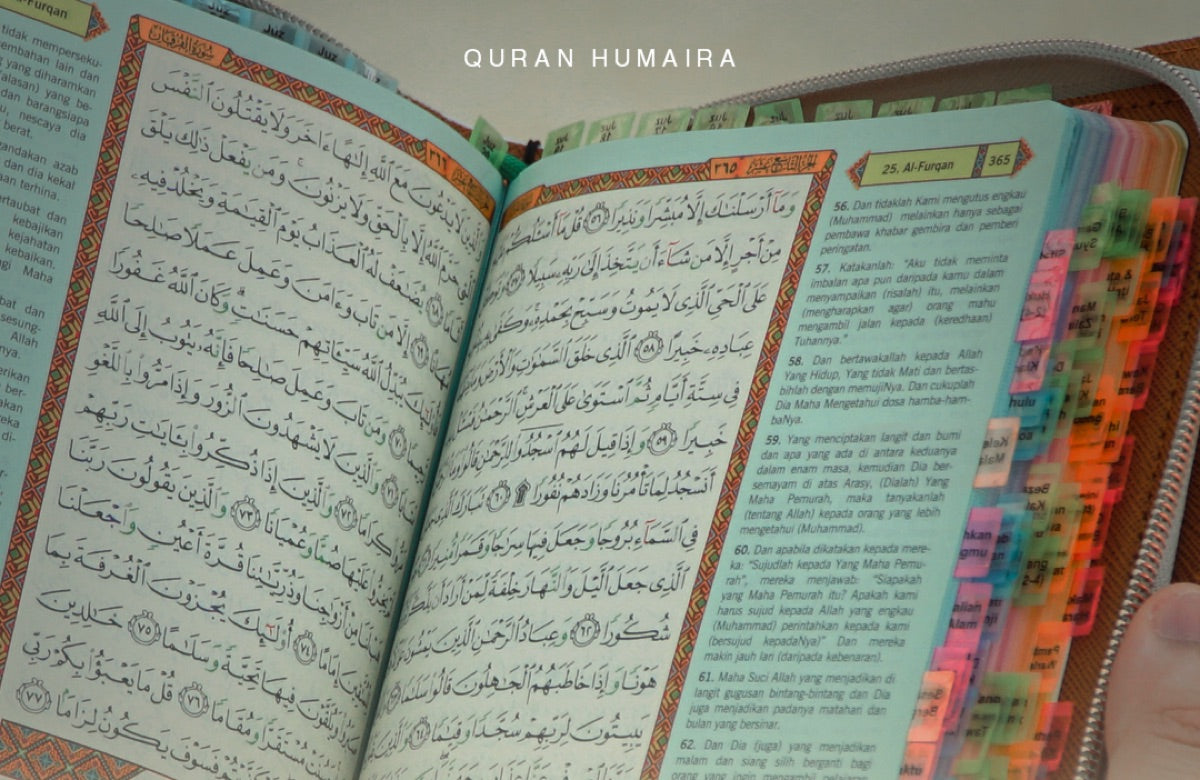 QURAN HUMAIRA
Juz
Juz
Juz
-Furqan
tidak mempersеku-
embahan lain dan
yang diharamkan
alasan) yang be-
dan barangsiapa
u, nescaya dia
berat.
andakan azab
dan dia kekal
aan terhina.
ertaubat dan
kebajikan
kejahatan
kebaikan.
gi Maha
bat dan
sesung-
Allah
nya.
erikan
ber-
akan
eka
di-
سُورَةُ الفُرْقَانِ
٣٦٦
ٱلَّذِينَ لَا يَدْعُونَ مَعَ ٱللَّهِ إِلَـٰهًا ءَاخَرَ وَلَا يَقْتُلُونَ ٱلنَّفْسَ
حَرَّمَ ٱللَّهُ إِلَّا بِٱلْحَقِّ وَلَا يَزْنُونَ ۚ وَمَن يَفْعَلْ ذَٰلِكَ يَلْقَ
يُضَـٰعَفْ لَهُ ٱلْعَذَابُ يَوْمَ ٱلْقِيَـٰمَةِ وَيَخْلُدْ فِيهِۦ
٦٩ إِلَّا مَن تَابَ وَءَامَنَ وَعَمِلَ عَمَلًا صَـٰلِحًا
يُبَدِّلُ ٱللَّهُ سَيِّـَٔاتِهِمْ حَسَنَـٰتٍ ۗ وَكَانَ ٱللَّهُ غَفُورًا
٧٠ وَمَن تَابَ وَعَمِلَ صَـٰلِحًا فَإِنَّهُۥ يَتُوبُ إِلَى ٱللَّهِ
٧١ وَٱلَّذِينَ لَا يَشْهَدُونَ ٱلزُّورَ وَإِذَا مَرُّوا۟ بِٱللَّغْوِ
مَرُّوا۟ كِرَامًا ٧٢ وَٱلَّذِينَ إِذَا ذُكِّرُوا۟ بِـَٔايَـٰتِ رَبِّهِمْ
يَخِرُّوا۟ عَلَيْهَا صُمًّا وَعُمْيَانًا ٧٣ وَٱلَّذِينَ يَقُولُونَ رَبَّنَا
لَنَا مِنْ أَزْوَٰجِنَا وَذُرِّيَّـٰتِنَا قُرَّةَ أَعْيُنٍ وَٱجْعَلْنَا
إِمَامًا ٧٤ أُو۟لَـٰٓئِكَ يُجْزَوْنَ ٱلْغُرْفَةَ بِمَا
وَيُلَقَّوْنَ فِيهَا تَحِيَّةً وَسَلَـٰمًا ٧٥ خَـٰلِدِينَ
مُسْتَقَرًّا وَمُقَامًا ٧٦ قُلْ مَا يَعْبَؤُا۟ بِكُمْ رَبِّى
فَسَوْفَ يَكُونُ لِزَامًۢا ٧٧
٣٦٥
الجزء التاسع عشر
وَمَآ أَرْسَلْنَـٰكَ إِلَّا مُبَشِّرًا وَنَذِيرًا ٥٦ قُلْ مَآ أَسْـَٔلُكُمْ
مِنْ أَجْرٍ إِلَّا مَن شَآءَ أَن يَتَّخِذَ إِلَىٰ رَبِّهِۦ سَبِيلًا ٥٧
عَلَى ٱلْحَىِّ ٱلَّذِى لَا يَمُوتُ وَسَبِّحْ بِحَمْدِهِۦ ۚ وَكَفَىٰ بِهِۦ
عِبَادِهِۦ خَبِيرًا ٥٨ ٱلَّذِى خَلَقَ ٱلسَّمَـٰوَٰتِ وَٱلْأَرْضَ
فِى سِتَّةِ أَيَّامٍ ثُمَّ ٱسْتَوَىٰ عَلَى ٱلْعَرْشِ ۚ ٱلرَّحْمَـٰنُ
خَبِيرًا ٥٩ وَإِذَا قِيلَ لَهُمُ ٱسْجُدُوا۟ لِلرَّحْمَـٰنِ قَالُوا۟
أَنَسْجُدُ لِمَا تَأْمُرُنَا وَزَادَهُمْ نُفُورًا ۩ ٦٠ تَبَارَكَ ٱلَّذِى جَعَلَ
فِى ٱلسَّمَآءِ بُرُوجًا وَجَعَلَ فِيهَا سِرَٰجًا وَقَمَرًا مُّنِيرًا
ٱلَّذِى جَعَلَ ٱلَّيْلَ وَٱلنَّهَارَ خِلْفَةً لِّمَنْ أَرَادَ أَن يَذَّكَّرَ
شُكُورًا ٦٢ وَعِبَادُ ٱلرَّحْمَـٰنِ ٱلَّذِينَ يَمْشُونَ
هَوْنًا وَإِذَا خَاطَبَهُمُ ٱلْجَـٰهِلُونَ قَالُوا۟ سَلَـٰمًا
يَبِيتُونَ لِرَبِّهِمْ سُجَّدًا وَقِيَـٰمًا ٦٤ وَٱلَّذِينَ
25. Al-Furqan 365
56. Dan tidaklah Kami mengutus engkau
(Muhammad) melainkan hanya sebagai
pembawa khabar gembira dan pemberi
peringatan.
57. Katakanlah: "Aku tidak meminta
imbalan apa pun daripada kamu dalam
menyampaikan (risalah) itu, melainkan
(mengharapkan agar) orang mahu
mengambil jalan kepada (keredhaan)
Tuhannya."
58. Dan bertawakallah kepada Allah
Yang Hidup, Yang tidak Mati dan bertas-
bihlah dengan memujiNya. Dan cukuplah
Dia Maha Mengetahui dosa hamba-ham-
baNya.
59. Yang menciptakan langit dan bumi
dan apa yang ada di antara keduanya
dalam enam masa, kemudian Dia ber-
semayam di atas Arasy, (Dialah) Yang
Maha Pemurah, maka tanyakanlah
(tentang Allah) kepada orang yang lebih
mengetahui (Muhammad).
60. Dan apabila dikatakan kepada mere-
ka: "Sujudlah kepada Yang Maha Pemu-
rah", mereka menjawab: "Siapakah
yang Maha Pemurah itu? Apakah kami
harus sujud kepada Allah yang engkau
(Muhammad) perintahkan kepada kami
(bersujud kepadaNya)" Dan mereka
makin jauh lari (daripada kebenaran).
61. Maha Suci Allah yang menjadikan di
langit gugusan bintang-bintang dan Dia
juga menjadikan padanya matahari dan
bulan yang bersinar.
62. Dan Dia (juga) yang menjadikan
malam dan siang silih berganti bagi
orang yang ingin mengambil pelajaran